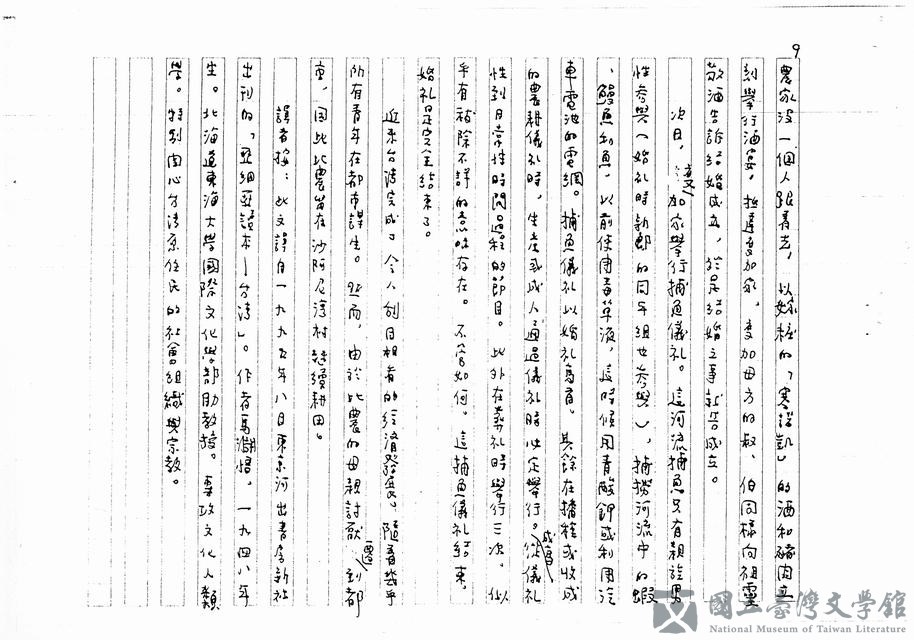 9
農家沒一個人跟著去，以嫁粧的「寒諾凱」的酒和豬肉立
刻舉行酒宴。抵達麥加家，麥加母方的叔、伯同樣向祖靈
敬酒告訴結婚成立，於是結婚之事就告成立。
次日，麥加家舉行捕魚儀礼。這河流捕魚只有親族男
性參與（婚礼時新郎的同年組也參與），捕撈河流中的蝦
、鰻魚和魚，以前使用毒草液，這時候用青酸鉀或利用汽
車電池的電網。捕魚儀礼以婚礼為首，其餘在播種或收成
的農耕儀礼時，生產或成人通過儀礼時必定舉行。成為從儀礼
性到日常性時間過程的節目。此外在葬礼時舉行三次，似
乎有祓除不詳的意味存在。不管如何，這捕魚儀礼結束，
婚礼是完全結束了。
近來台灣完成了令人刮目相看的經濟發展。隨著幾乎
所有青年在都市謀生。然而，由於比農的母親討厭遷到都
市，因此比農留在沙阿尼灣村繼續耕田。
譯者按：此文譯自一九九五年八月東京河出書房新社
出刊的「亞細亞讀本—台灣」。作者馬淵悟，一九四八年
生。北海道東海大學國際文化學部助教授。專攻文化人類
學。特別関心台湾原住民的社會組織與宗教。
國立臺灣文學館
National Museum of Taiwan Literature